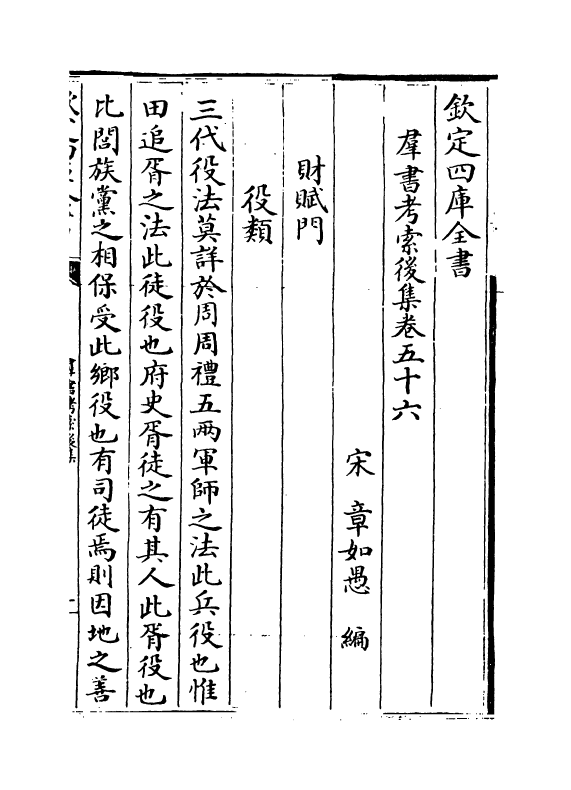 欽定四庫全書
羣書考索後集卷五十六
宋 章如愚 編
財賦門
役類
三代役法莫詳於周周禮五兩軍師之法此兵役也惟
田追胥之法此徒役也府史胥徒之有其人此胥役也
比閭族黨之相保受此鄉役也有司徒焉則因地之善